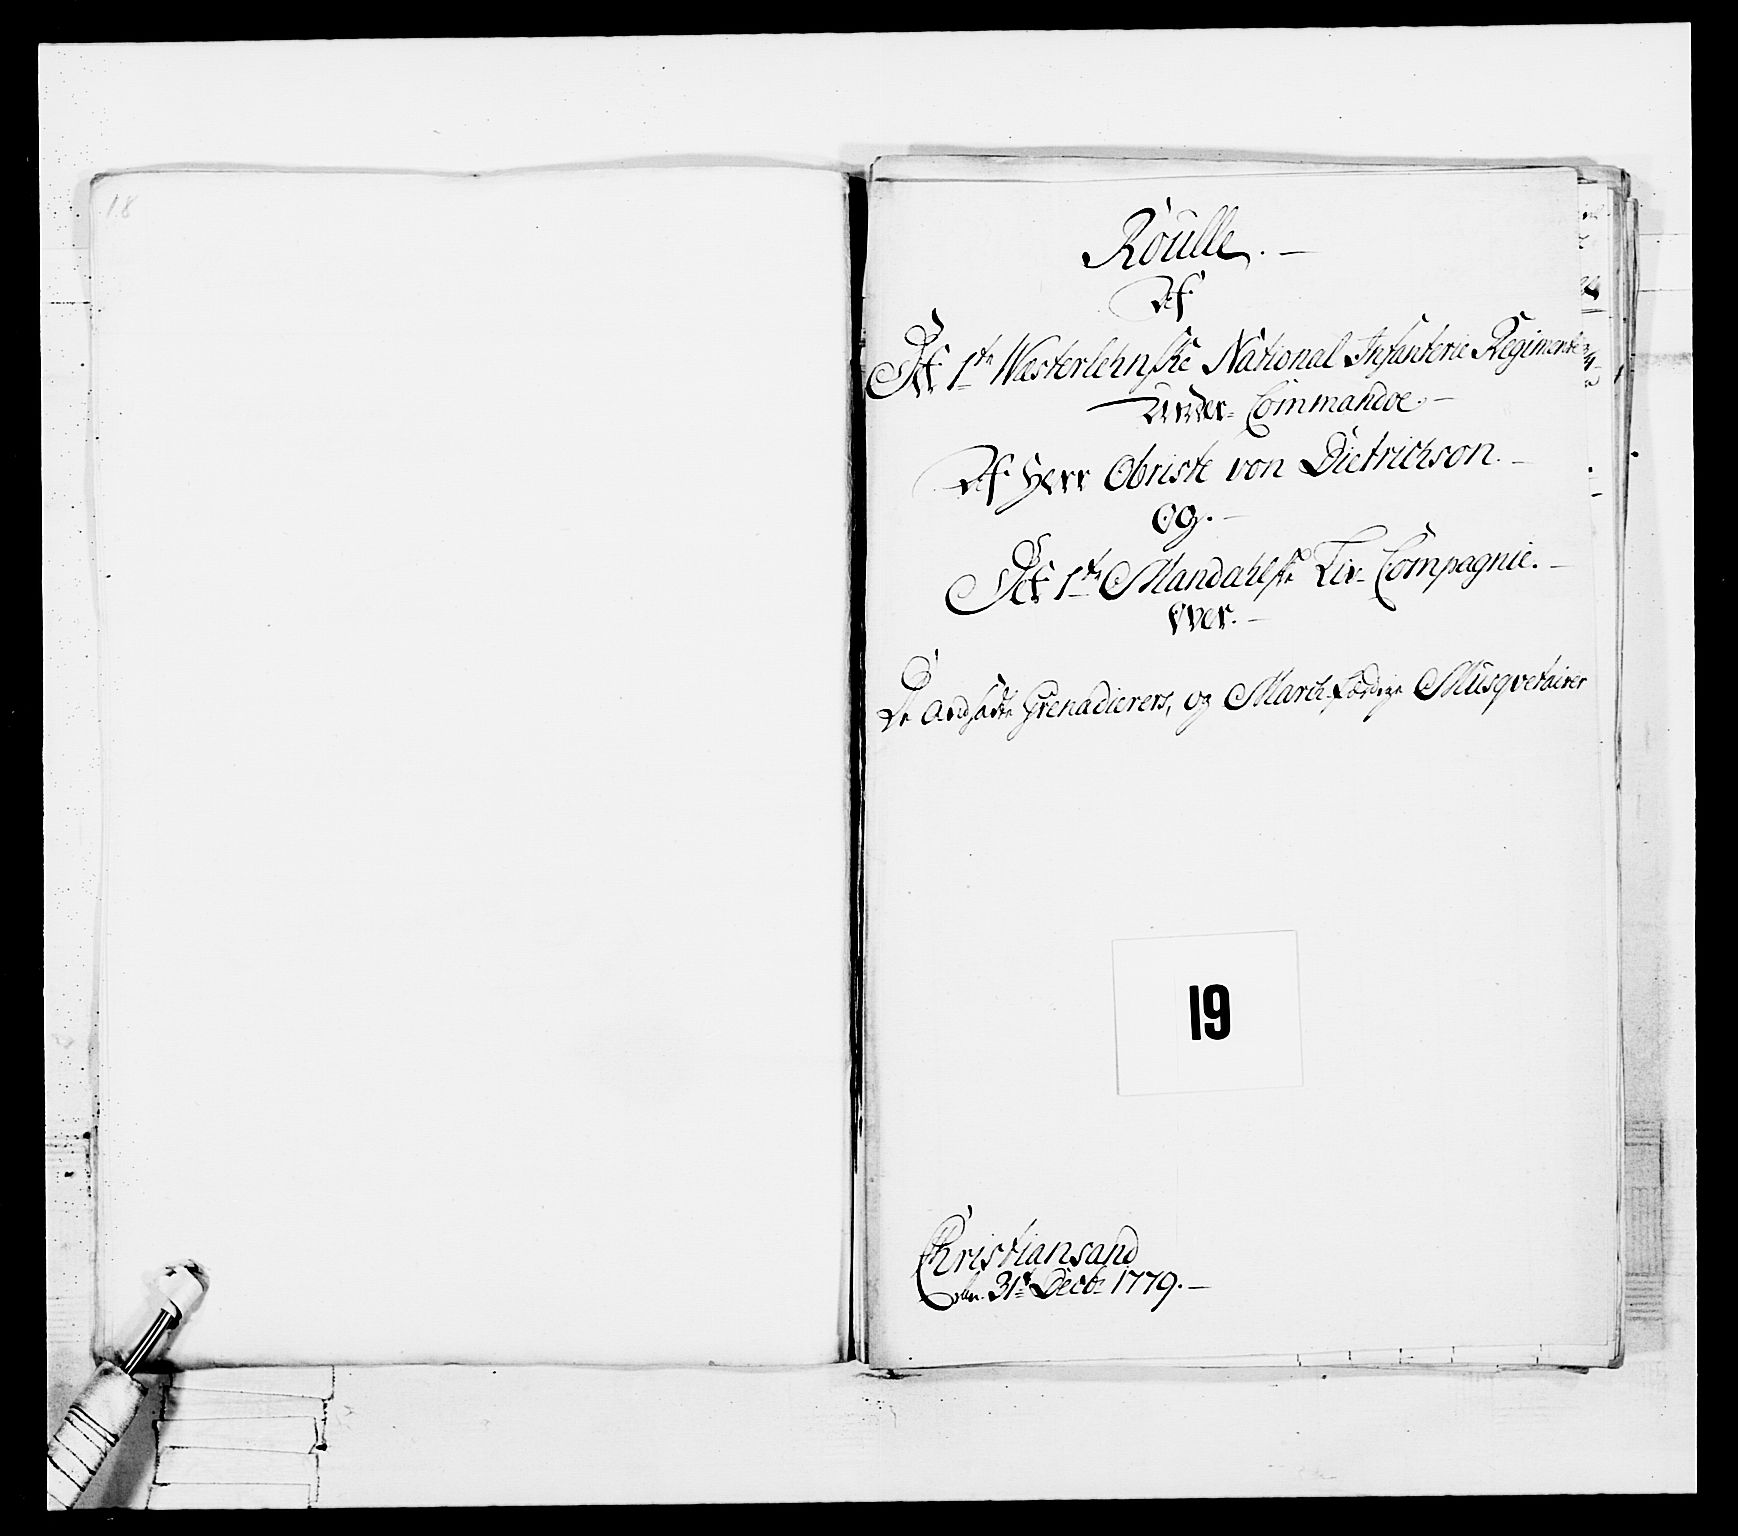 18
Roulle. —
Af
Det 1te Westerlehnske National Infanterie Regimente
Under Commandoe. —
Af Herr Obriste von Dietrichson. —
Og. —
Det 1te Mandahlske Liv-Compagnie. —
Over. —
De Grenadierers, og March-færdige Musqvetairer
19
Christiansand
den 31te Decbr 1779. —